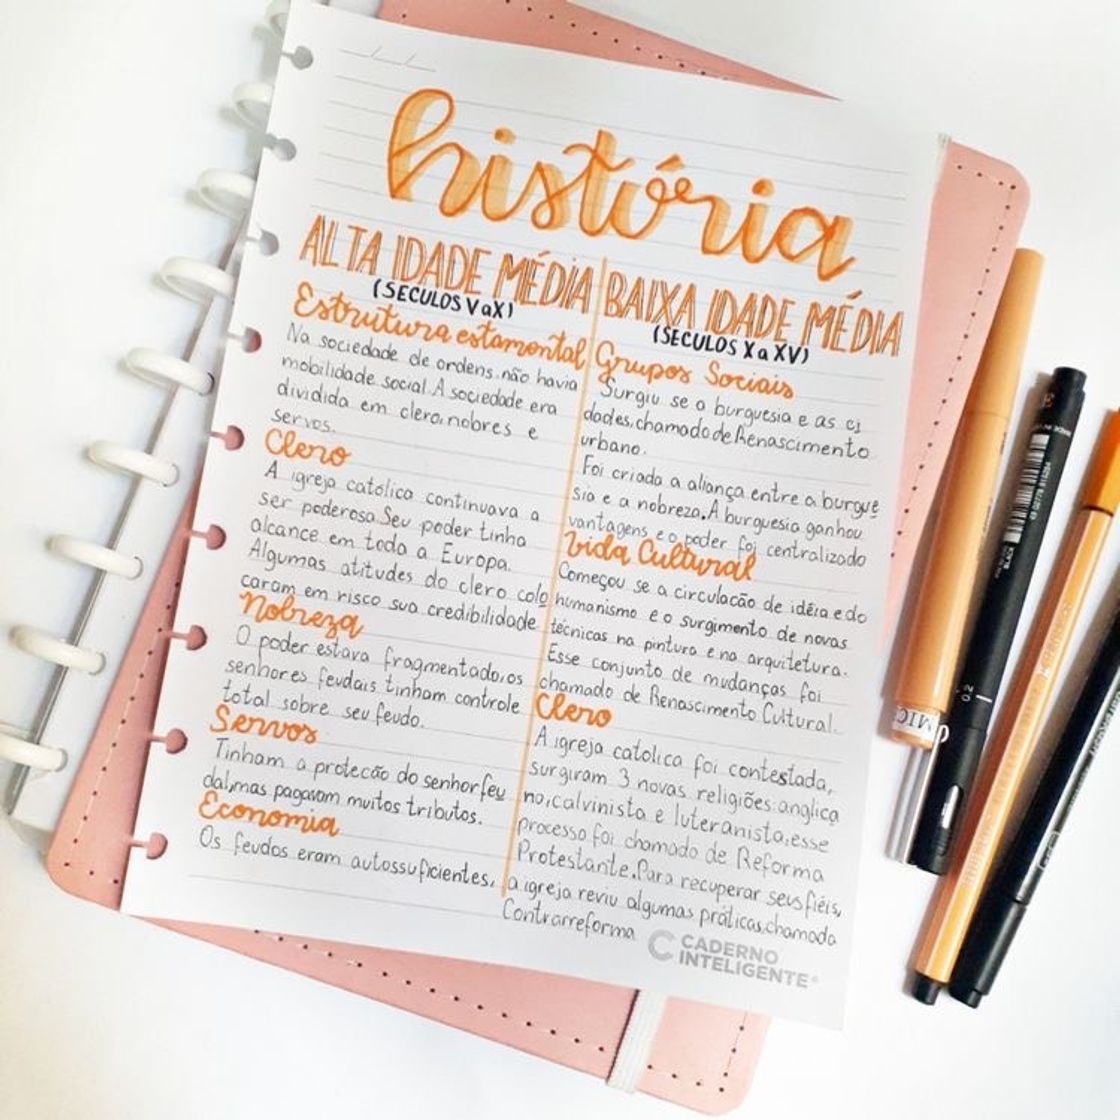 história
ALTA IDADE MÉDIA
(SECULOS V a X)
Estrutura estamental
Na sociedade de ordens não havia
mobilidade social. A sociedade era
dividida em clero, nobres e
servos.
Clero
A igreja católica continuava a
ser poderosa. Seu poder tinha
alcance em toda a Europa.
Algumas atitudes do clero colo
caram em risco sua credibilidade
Nobreza
O poder estava fragmentado, os
senhores feudais tinham controle
total sobre seu feudo.
Servos
Tinham a protecão do senhor feu
dal, mas pagavam muitos tributos.
Economia
Os feudos eram autossuficientes.
BAIXA IDADE MÉDIA
(SECULOS X a XV)
Grupos Sociais
Surgiu se a burguesia e as ci
dades, chamado de Renascimento
urbano.
Foi criada a aliança entre a burgue
sia e a nobreza. A burguesia ganhou
vantagens e o poder foi centralizado
Vida Cultural
Começou se a circulacão de idéia e do
humanismo e o surgimento de novas
técnicas na pintura e na arquitetura.
Esse conjunto de mudanças foi
chamado de Renascimento Cultural.
Clero
A igreja católica foi contestada,
surgiram 3 novas religiões: anglica
no, calvinista e luteranista, esse
processo foi chamado de Reforma
Protestante. Para recuperar seus fiéis,
a igreja reviu algumas práticas, chamada
Contrarreforma
CADERNO
INTELIGENTE®
0.2